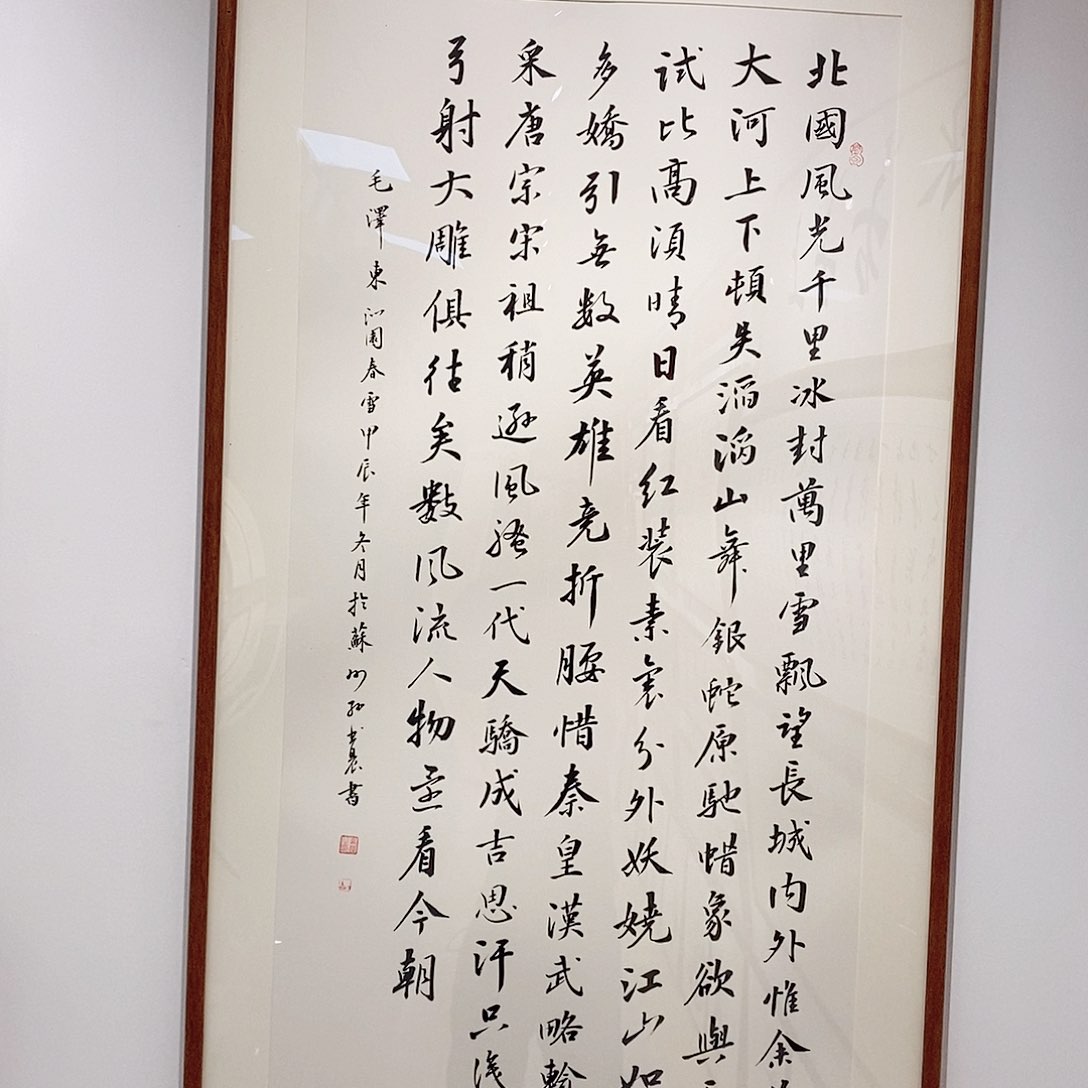 北國風光千里冰封萬里雪飄望長城内外惟余
大河上下頓失滔滔山舞銀蛇原馳蜡象欲與
試比高須晴日看红装素裹分外妖娆江山如
多嬌引無數英雄竞折腰惜秦皇漢武略輸
采唐宗宋祖稍逊風骚一代天驕成吉思汗只识
弓射大雕俱往矣數风流人物还看今朝
毛澤東沁園春雪甲辰年冬月於蘇州孙書